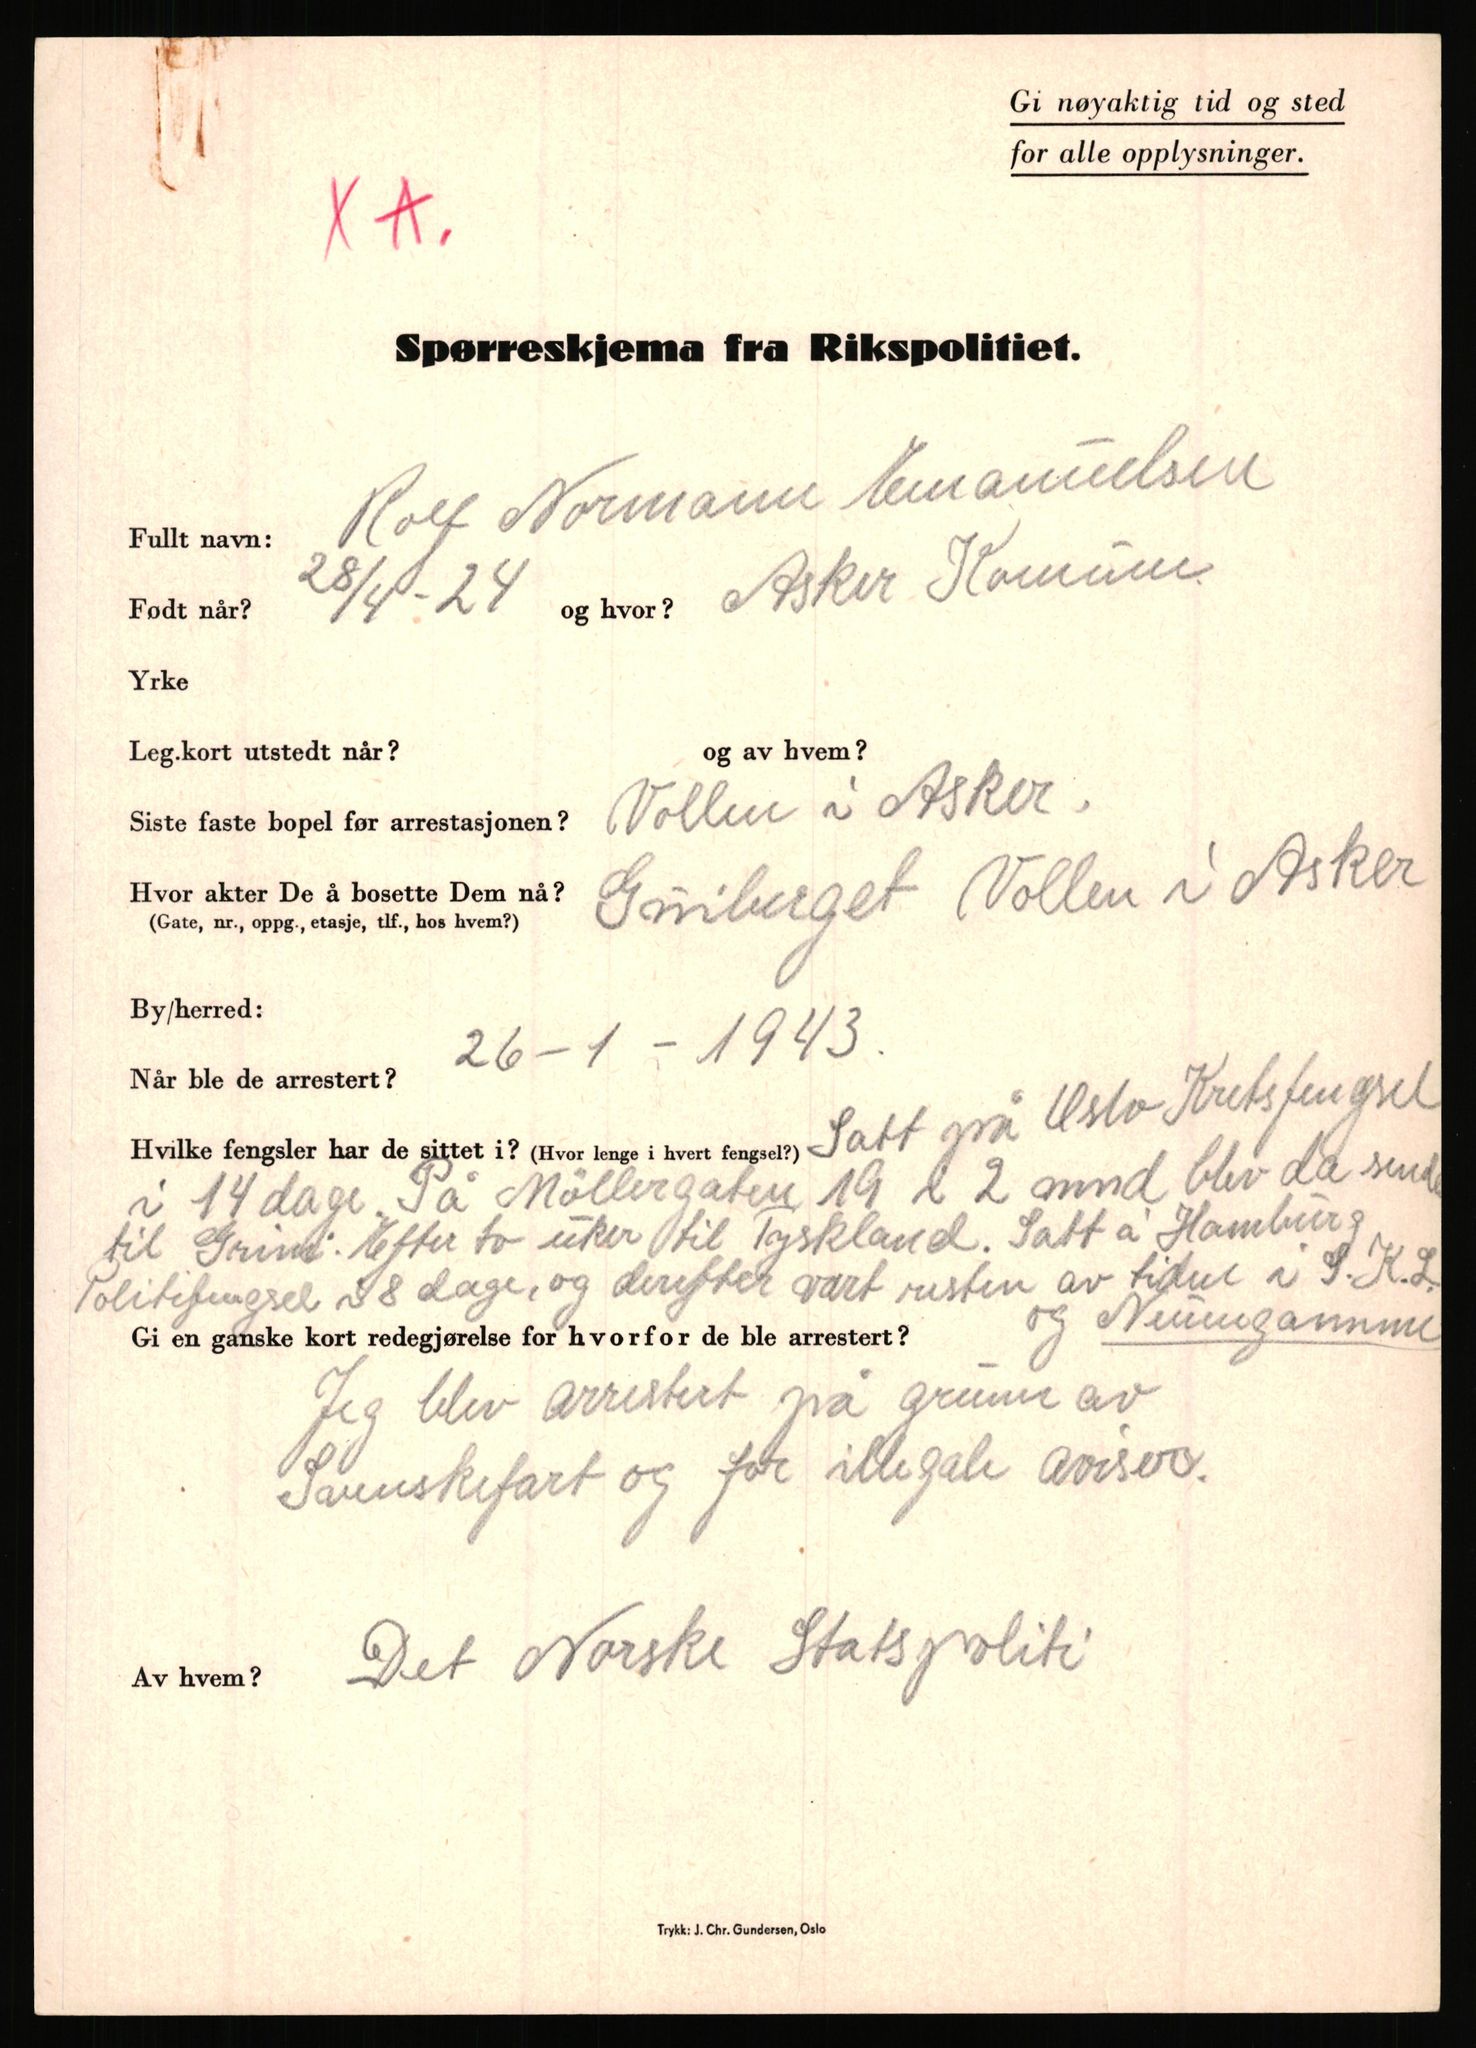 Gi nøyaktig tid og sted
for alle opplysninger.
X A.
Spørreskjema fra Rikspolitiet.
Fullt navn: Rolf Normann Emanuelsen
Født når? 28/4-24 og hvor? Asker Komune
Yrke
Leg.kort utstedt når? og av hvem?
Siste faste bopel før arrestasjonen? Vollen i Asker.
Hvor akter De å bosette Dem nå? Vollen i Asker
(Gate, nr., oppg., etasje, tlf., hos hvem?)
By/herred:
Når ble de arrestert? 26-1-1943.
Hvilke fengsler har de sittet i? (Hvor lenge i hvert fengsel?) Satt på Oslo Kretsfengsel
i 14 dage. På Möllergaten 19 i 2 mnd blev da sendt
til Grini. Efter to uker til Tyskland. Satt i Hamburg
Politifengsel i 8 dage, og derefter vært resten av tiden i S.K.L.
og Neuengamme
Gi en ganske kort redegjørelse for hvorfor de ble arrestert?
Jeg blev arrestert på grunn av
Svenskefart og for illegale aviser.
Av hvem? Det Norske Statspoliti
Trykk: J. Chr. Gundersen, Oslo